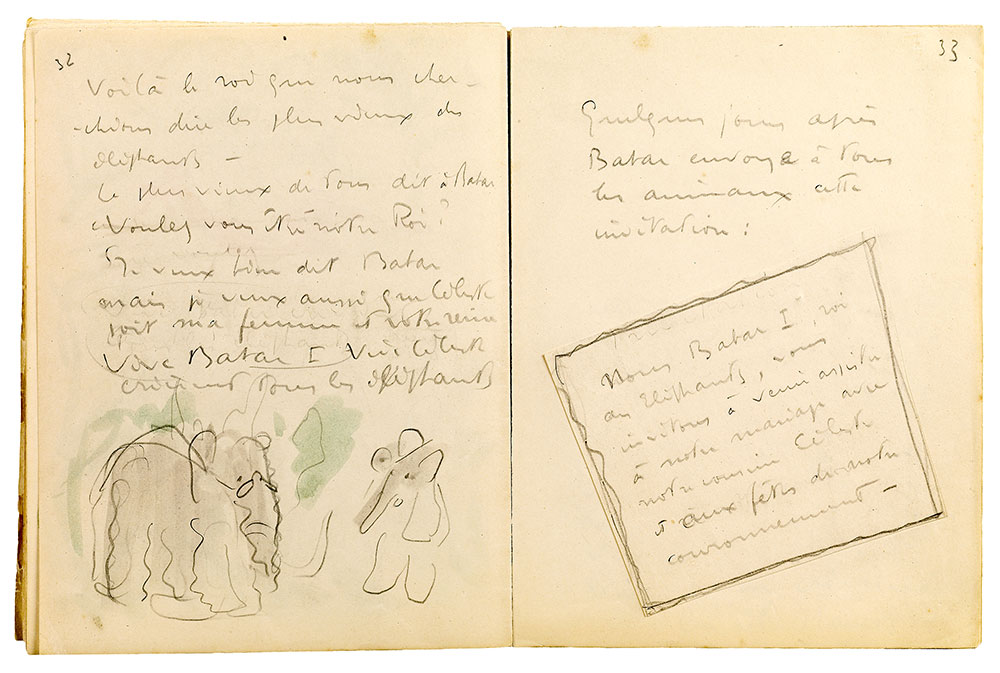 32
Voilà le roi que nous cher-
-chions dire les plus vieux des
éléphants -
Le plus vieux de tous dit à Babar
Voulez vous être notre Roi?
Je veux bien dit Babar
mais je veux aussi que Céleste
soit ma femme et votre reine
Vive Babar I Vive Céleste
crièrent tous les éléphants
33
Quelques jours après
Babar envoya à tous
les animaux cette
invitation :
Nous Babar I, roi
des Eléphants, vous
invitons à venir assister
à notre mariage avec
notre cousine Céleste
et aux fêtes de notre
couronnement -